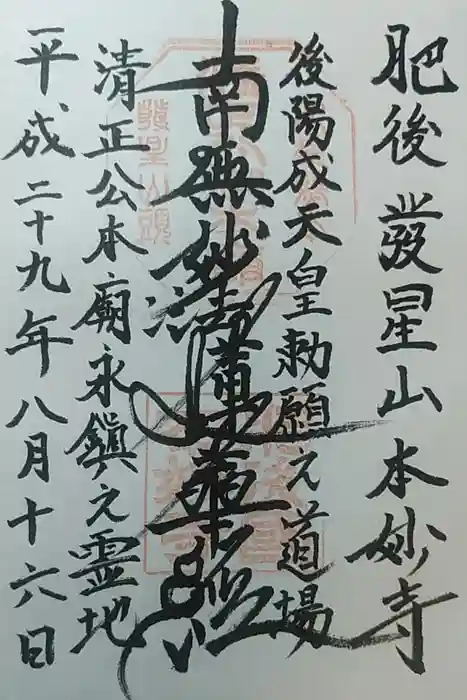 肥後 發星山 本妙寺
後陽成天皇勅願之道場
南無妙法蓮華経
清正公本廟永鎮之霊地
平成二十九年八月十六日